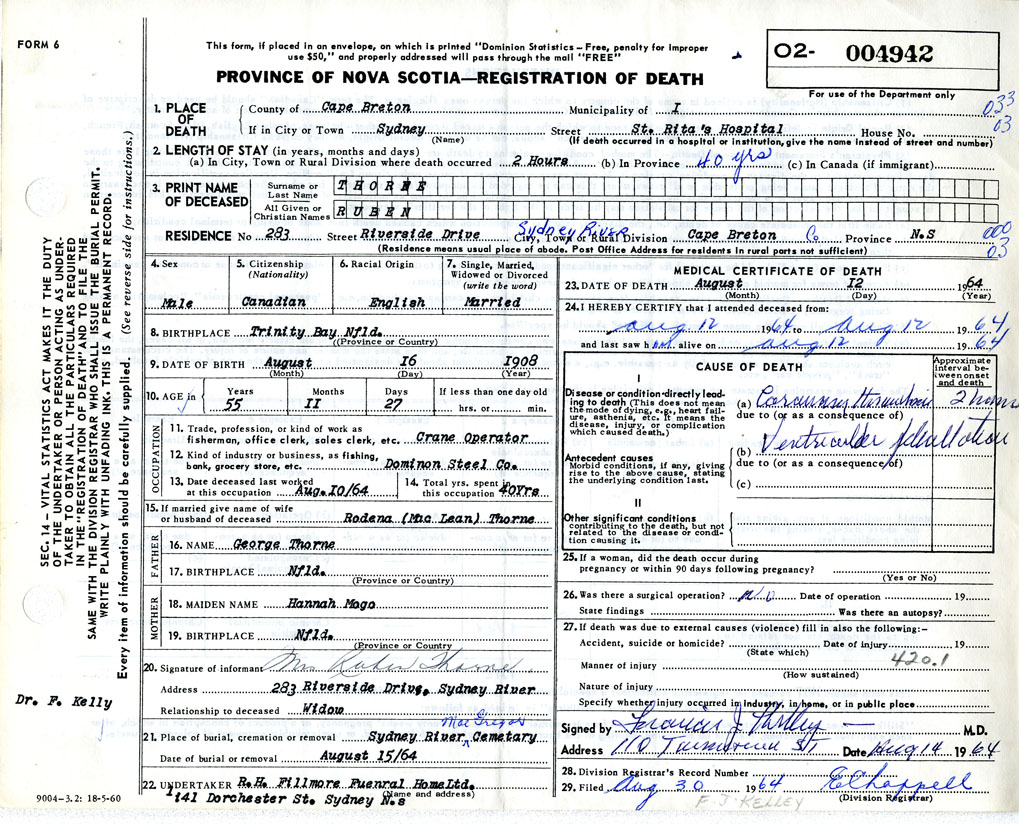 FORM 6
This form, if placed in an envelope, on which is printed "Dominion Statistics – Free, penalty for improper
use $50," and properly addressed will pass through the mail "FREE"
O2- 004942
For use of the Department only
PROVINCE OF NOVA SCOTIA—REGISTRATION OF DEATH
033
03
1. PLACE OF DEATH
County of Cape Breton Municipality of I
If in City or Town Sydney Street St. Rita's Hospital House No.
(Name) (If death occurred in a hospital or institution, give the name instead of street and number)
2. LENGTH OF STAY (in years, months and days)
(a) In City, Town or Rural Division where death occurred 2 Hours (b) In Province 40 yrs (c) In Canada (if immigrant)
3. PRINT NAME OF DECEASED
Surname or Last Name THORNE
All Given or Christian Names RUBEN
RESIDENCE No 283 Street Riverside Drive Sydney River City, Town or Rural Division Cape Breton Co Province N.S
000
03
(Residence means usual place of abode. Post Office Address for residents in rural parts not sufficient)
4. Sex
Male
5. Citizenship (Nationality)
Canadian
6. Racial Origin
English
7. Single, Married, Widowed or Divorced (write the word)
Married
8. BIRTHPLACE Trinity Bay Nfld.
(Province or Country)
9. DATE OF BIRTH August 16 1908
(Month) (Day) (Year)
10. AGE in Years Months Days If less than one day old
55 II 27 hrs. or min.
OCCUPATION
11. Trade, profession, or kind of work as
fisherman, office clerk, sales clerk, etc. Crane Operator
12. Kind of industry or business, as fishing,
bank, grocery store, etc. Dominon Steel Co.
13. Date deceased last worked
at this occupation Aug.10/64
14. Total yrs. spent in
this occupation 40Yrs
15. If married give name of wife
or husband of deceased Rodena (Mac Lean) Thorne
FATHER
16. NAME George Thorne
17. BIRTHPLACE Nfld.
(Province or Country)
MOTHER
18. MAIDEN NAME Hannah Mogo
19. BIRTHPLACE Nfld.
(Province or Country)
20. Signature of informant Mrs Ruben Thorne
Address 283 Riverside Drive, Sydney River
Relationship to deceased Widow
MacGregor
21. Place of burial, cremation or removal Sydney River Cemetary
Date of burial or removal August 15/64
22. UNDERTAKER R.H. Fillmore Fuenral HomeLtd.
(Name and address)
141 Dorchester St. Sydney N.s
MEDICAL CERTIFICATE OF DEATH
23. DATE OF DEATH August 12 1964
(Month) (Day) (Year)
24. I HEREBY CERTIFY that I attended deceased from:
Aug 12 1964 to Aug 12 1964
and last saw him alive on Aug 12 1964
CAUSE OF DEATH
Approximate interval between onset and death
I
Disease or condition directly leading to death (This does not mean
the mode of dying, e.g., heart failure, asthenia, etc. It means the
disease, injury, or complication
which caused death.)
(a) Coronary thrombosis 2 hours
due to (or as a consequence of)
Antecedent causes
Morbid conditions, if any, giving
rise to the above cause, stating
the underlying condition last.
(b) Ventricular fibrillation
due to (or as a consequence of)
(c)
II
Other significant conditions
contributing to the death, but not
related to the disease or condition causing it.
25. If a woman, did the death occur during
pregnancy or within 90 days following pregnancy?
(Yes or No)
26. Was there a surgical operation? No Date of operation 19
State findings Was there an autopsy?
27. If death was due to external causes (violence) fill in also the following:–
Accident, suicide or homicide? Date of injury 19
(State which)
420.1
Manner of injury
(How sustained)
Nature of injury
Specify whether injury occurred in industry, in home, or in public place
Signed by Francis J Kelley M.D.
Address 110 St Date Aug 14 1964
28. Division Registrar's Record Number
29. Filed Aug 30 1964 E Chappell
(Division Registrar)
F J KELLEY
SEC. 14 – VITAL STATISTICS ACT MAKES IT THE DUTY
OF THE UNDERTAKER OR PERSON ACTING AS UNDERTAKER
TO OBTAIN ALL THE PARTICULARS REQUIRED
IN THE "REGISTRATION OF DEATH" AND TO FILE THE
SAME WITH THE DIVISION REGISTRAR WHO SHALL ISSUE THE BURIAL PERMIT.
WRITE PLAINLY WITH UNFADING INK. THIS IS A PERMANENT RECORD.
Every item of information should be carefully supplied. (See reverse side for instructions.)
Dr. F. Kelly
9004-3.2: 18-5-60